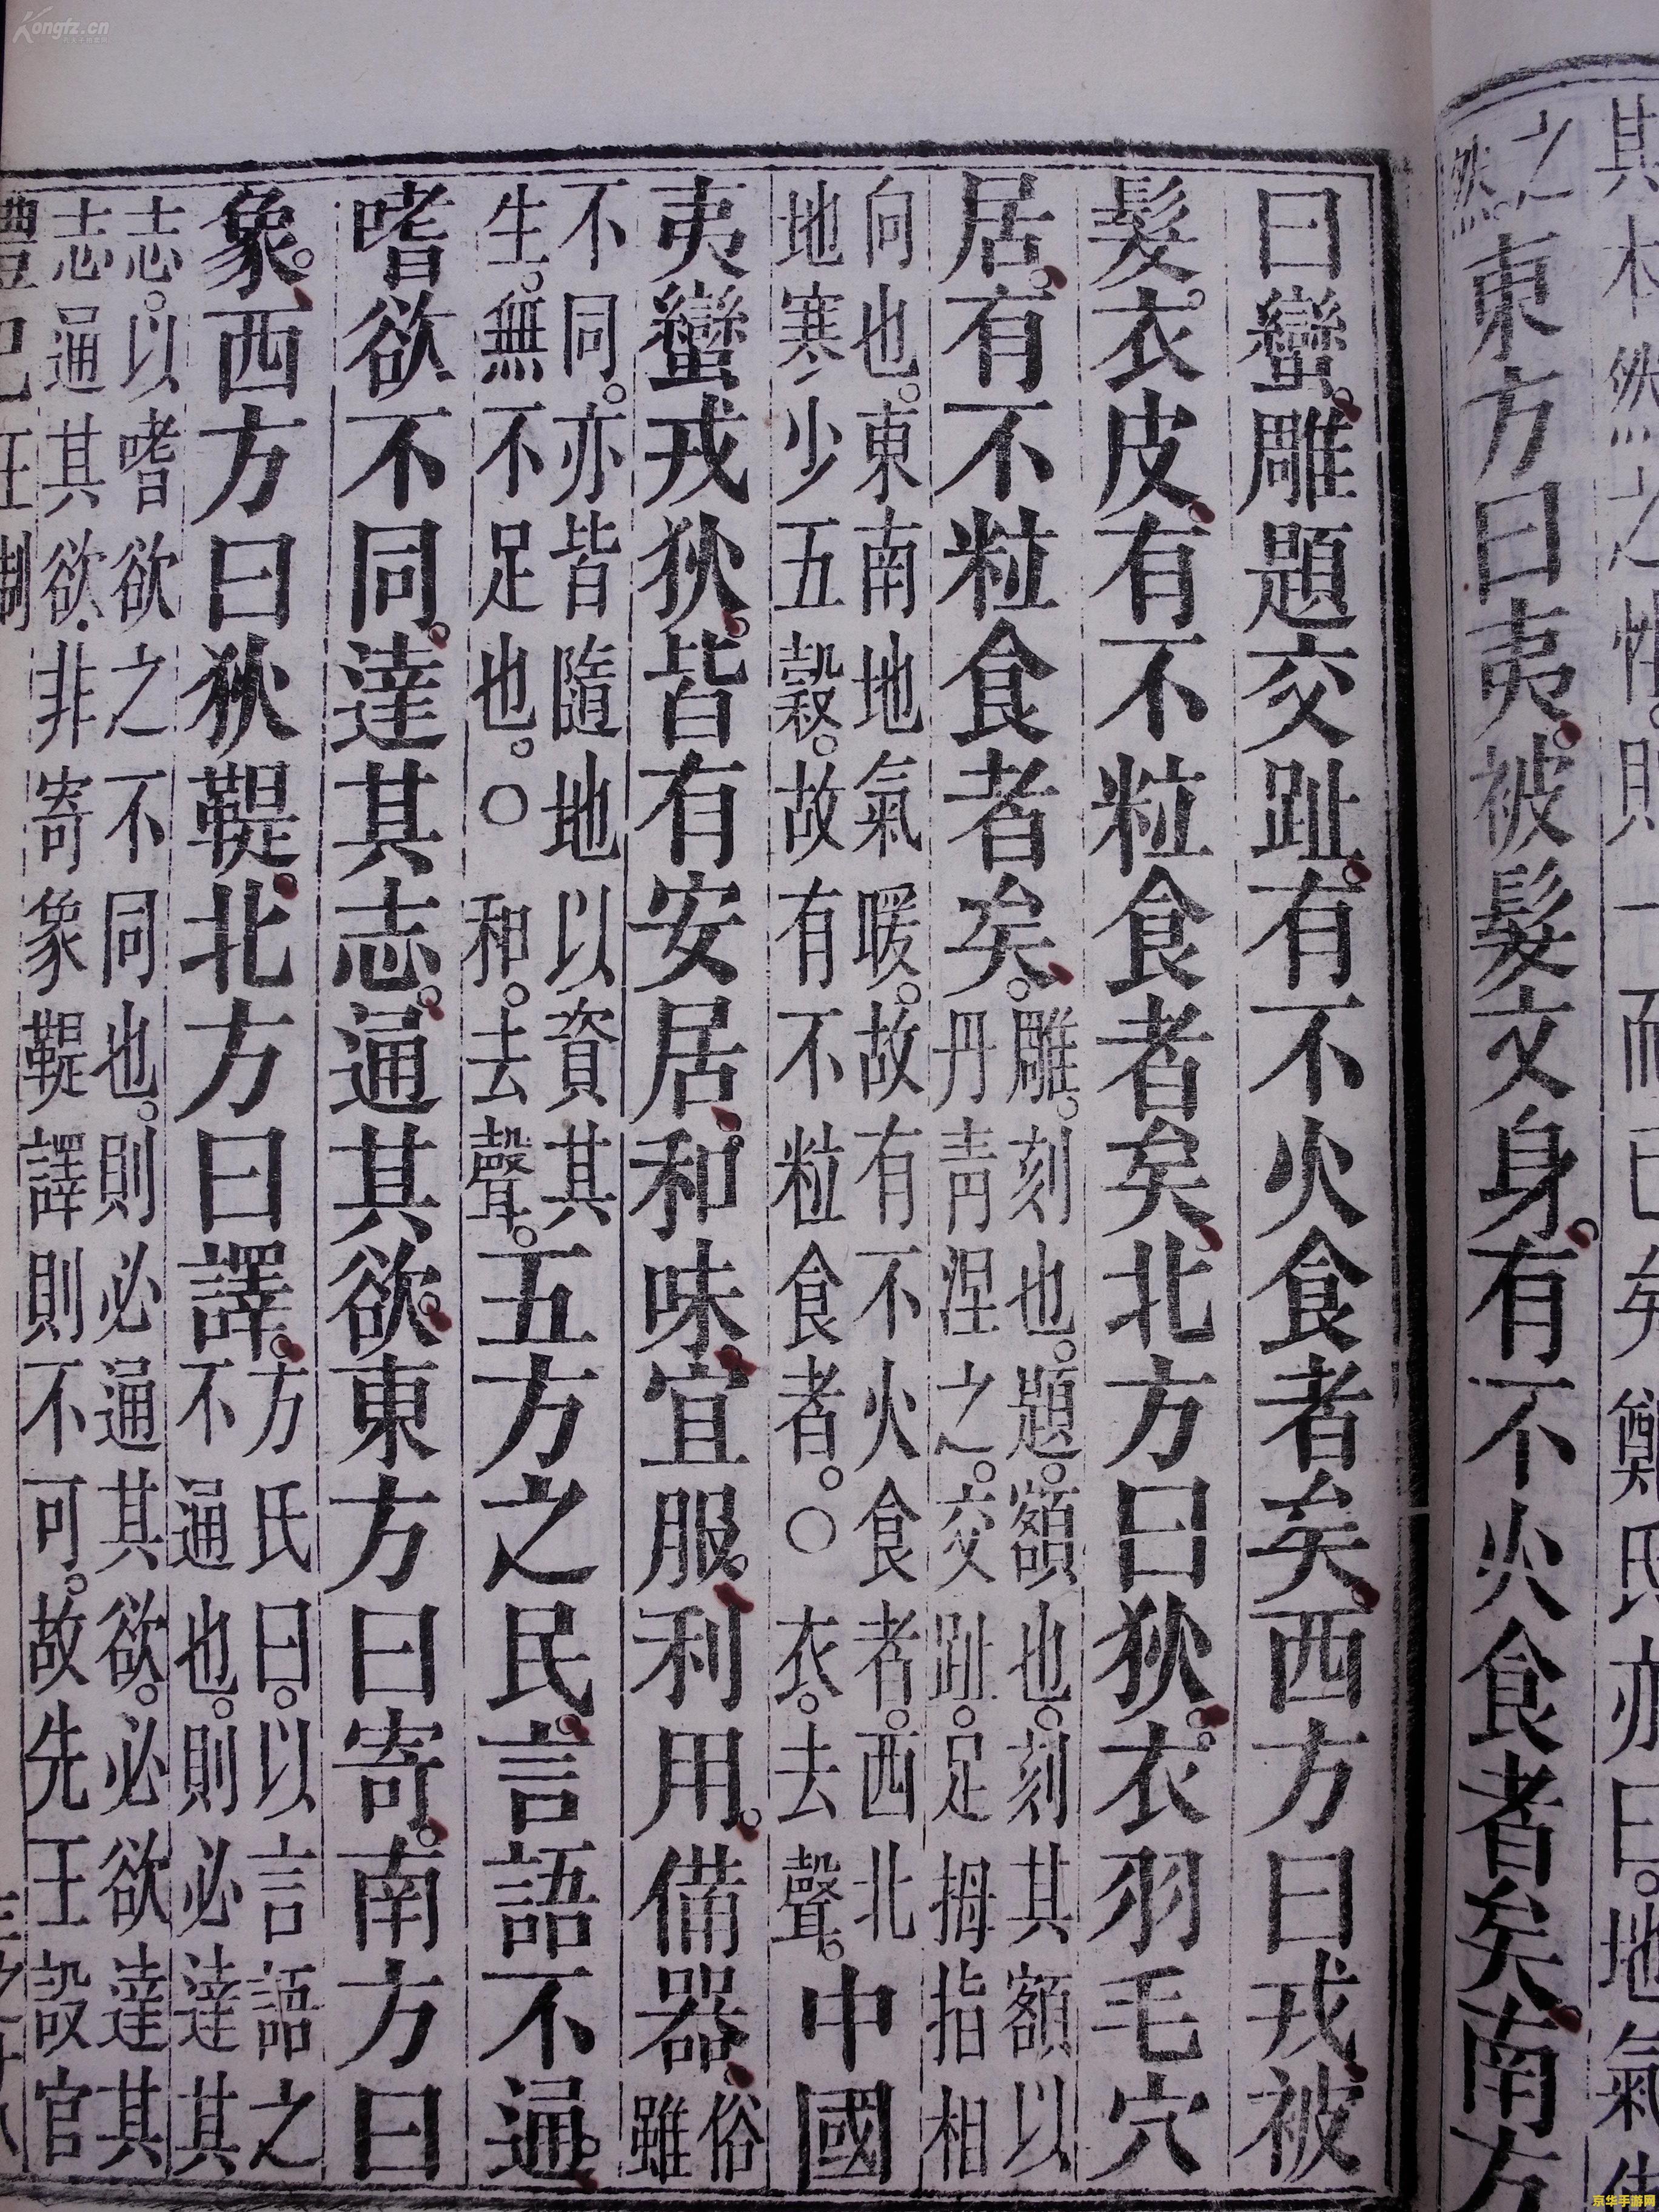 其本然之性。則一而已矣鄭氏亦曰。地氣
之
然。東方曰夷。被髮文身。有不火食者矣。南方
曰蠻。雕題交趾。有不火食者矣。西方曰戎。被
髮。衣皮。有不粒食者矣。北方曰狄。衣羽毛穴
居。有不粒食者矣。雕。刻也。題。額也。刻其額以
丹青涅之。交趾。足拇指相
向也。東南地氣暖。故有不火食者。西北
地寒少五穀。故有不粒食者。○衣。去聲。中國
夷蠻戎狄。皆有安居。和味。宜服。利用。備器。俗
雖
不同。亦皆隨地以資其
生。無不足也。○和。去聲。五方之民。言語不通。
嗜欲不同。達其志。通其欲。東方曰寄。南方曰
象。西方曰狄鞮。北方曰譯。方氏曰。以言語之
不通也。則必達其
志。以嗜欲之不同也。則必通其欲。必欲達其
志通其欲。非寄象鞮譯則不可。故先王設官
禮記 王制